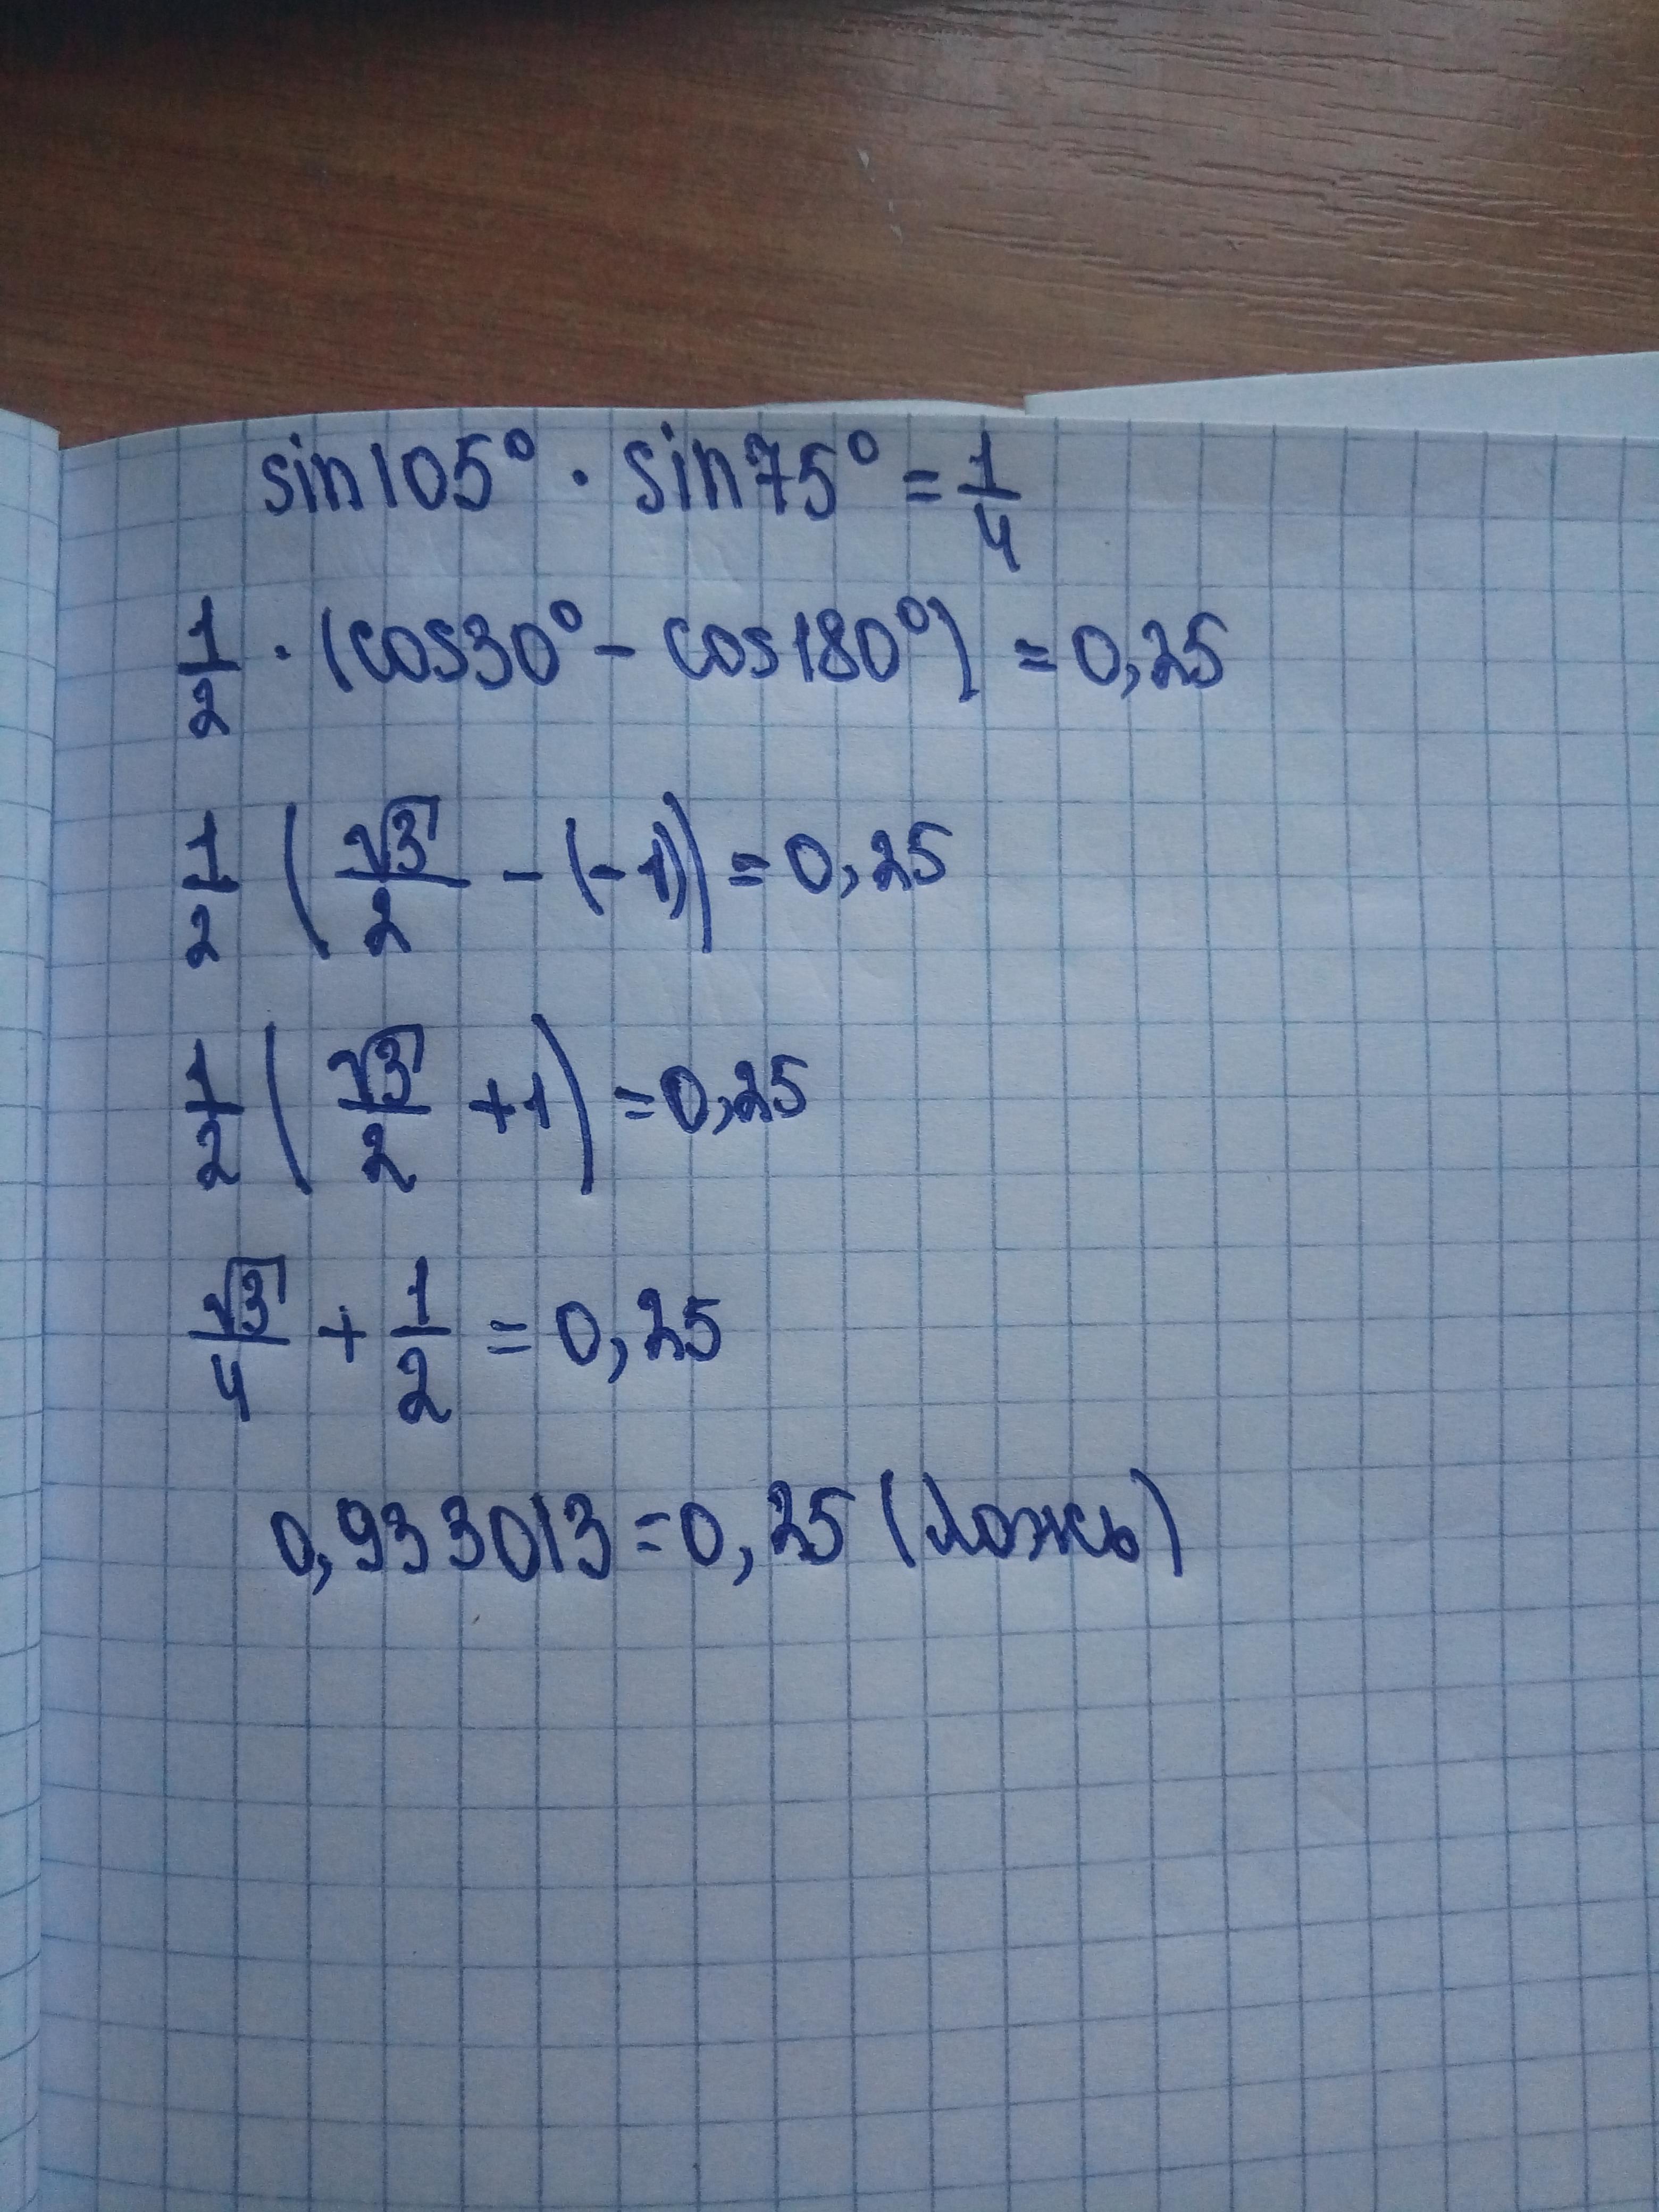 sin105° · sin75° = 1/4
1/2 · (cos30° - cos180°) = 0,25
1/2 (√3/2 - (-1)) = 0,25
1/2 (√3/2 + 1) = 0,25
√3/4 + 1/2 = 0,25
0,933013 = 0,25 (ложь)